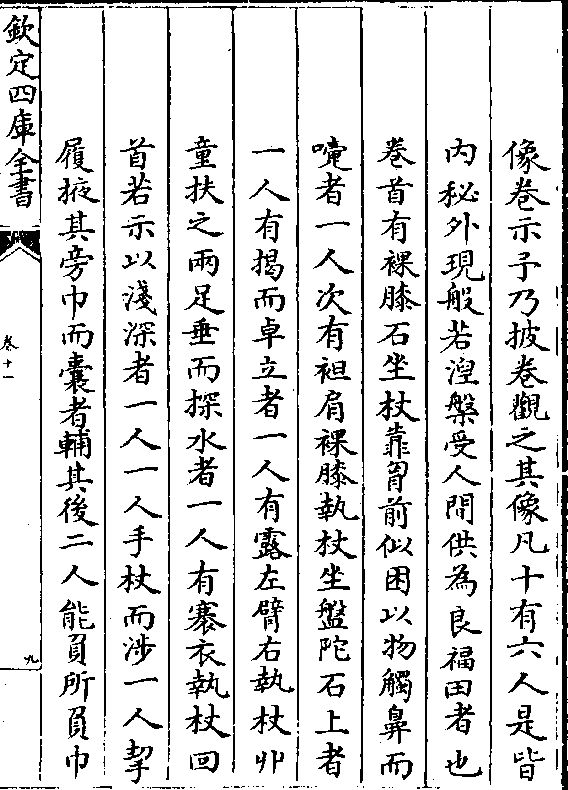 像卷示予乃披卷觀之其像凡十有六人是皆
内秘外現般若湼槃受人間供為良福田者也
卷首有裸膝石坐杖靠胷前似困以物觸鼻而
嚏者一人次有袒肩裸膝執杖坐盤陀石上者
一人有揭而卓立者一人有露左臂右執杖丱
童扶之兩足垂而探水者一人有褰衣執杖回
首若示以淺深者一人一人手杖而涉一人挈
履掖其旁巾而囊者輔其後二人能負所負巾
欽定四庫全書
卷十一
九